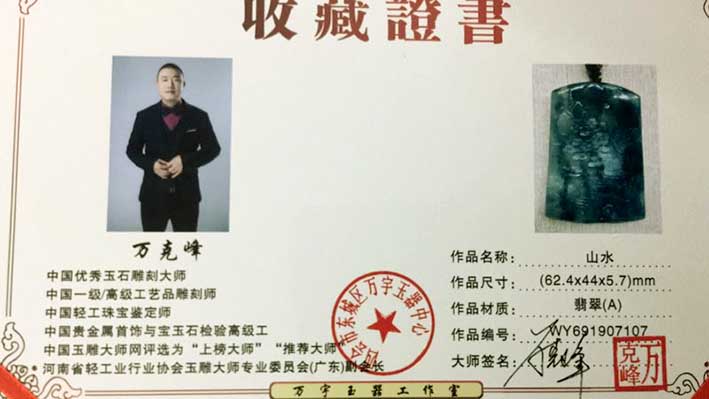 收藏證書
万克峰
中国优秀玉石雕刻大师
中国一级/高级工艺品雕刻师
中国轻工珠宝鉴定师
中国贵金属首饰与宝玉石检验高级工
中国玉雕大师网评选为“上榜大师”“推荐大师”
*河南省轻工业行业协会玉雕大师专业委员会(广东)副会长
四会市东城区万宇玉器中心
作品名称: 山水
作品尺寸: (62.4x44x5.7)mm
作品材质: 翡翠(A)
作品编号: WY691907107
大师签名:
万克峰
万宇玉器工作室